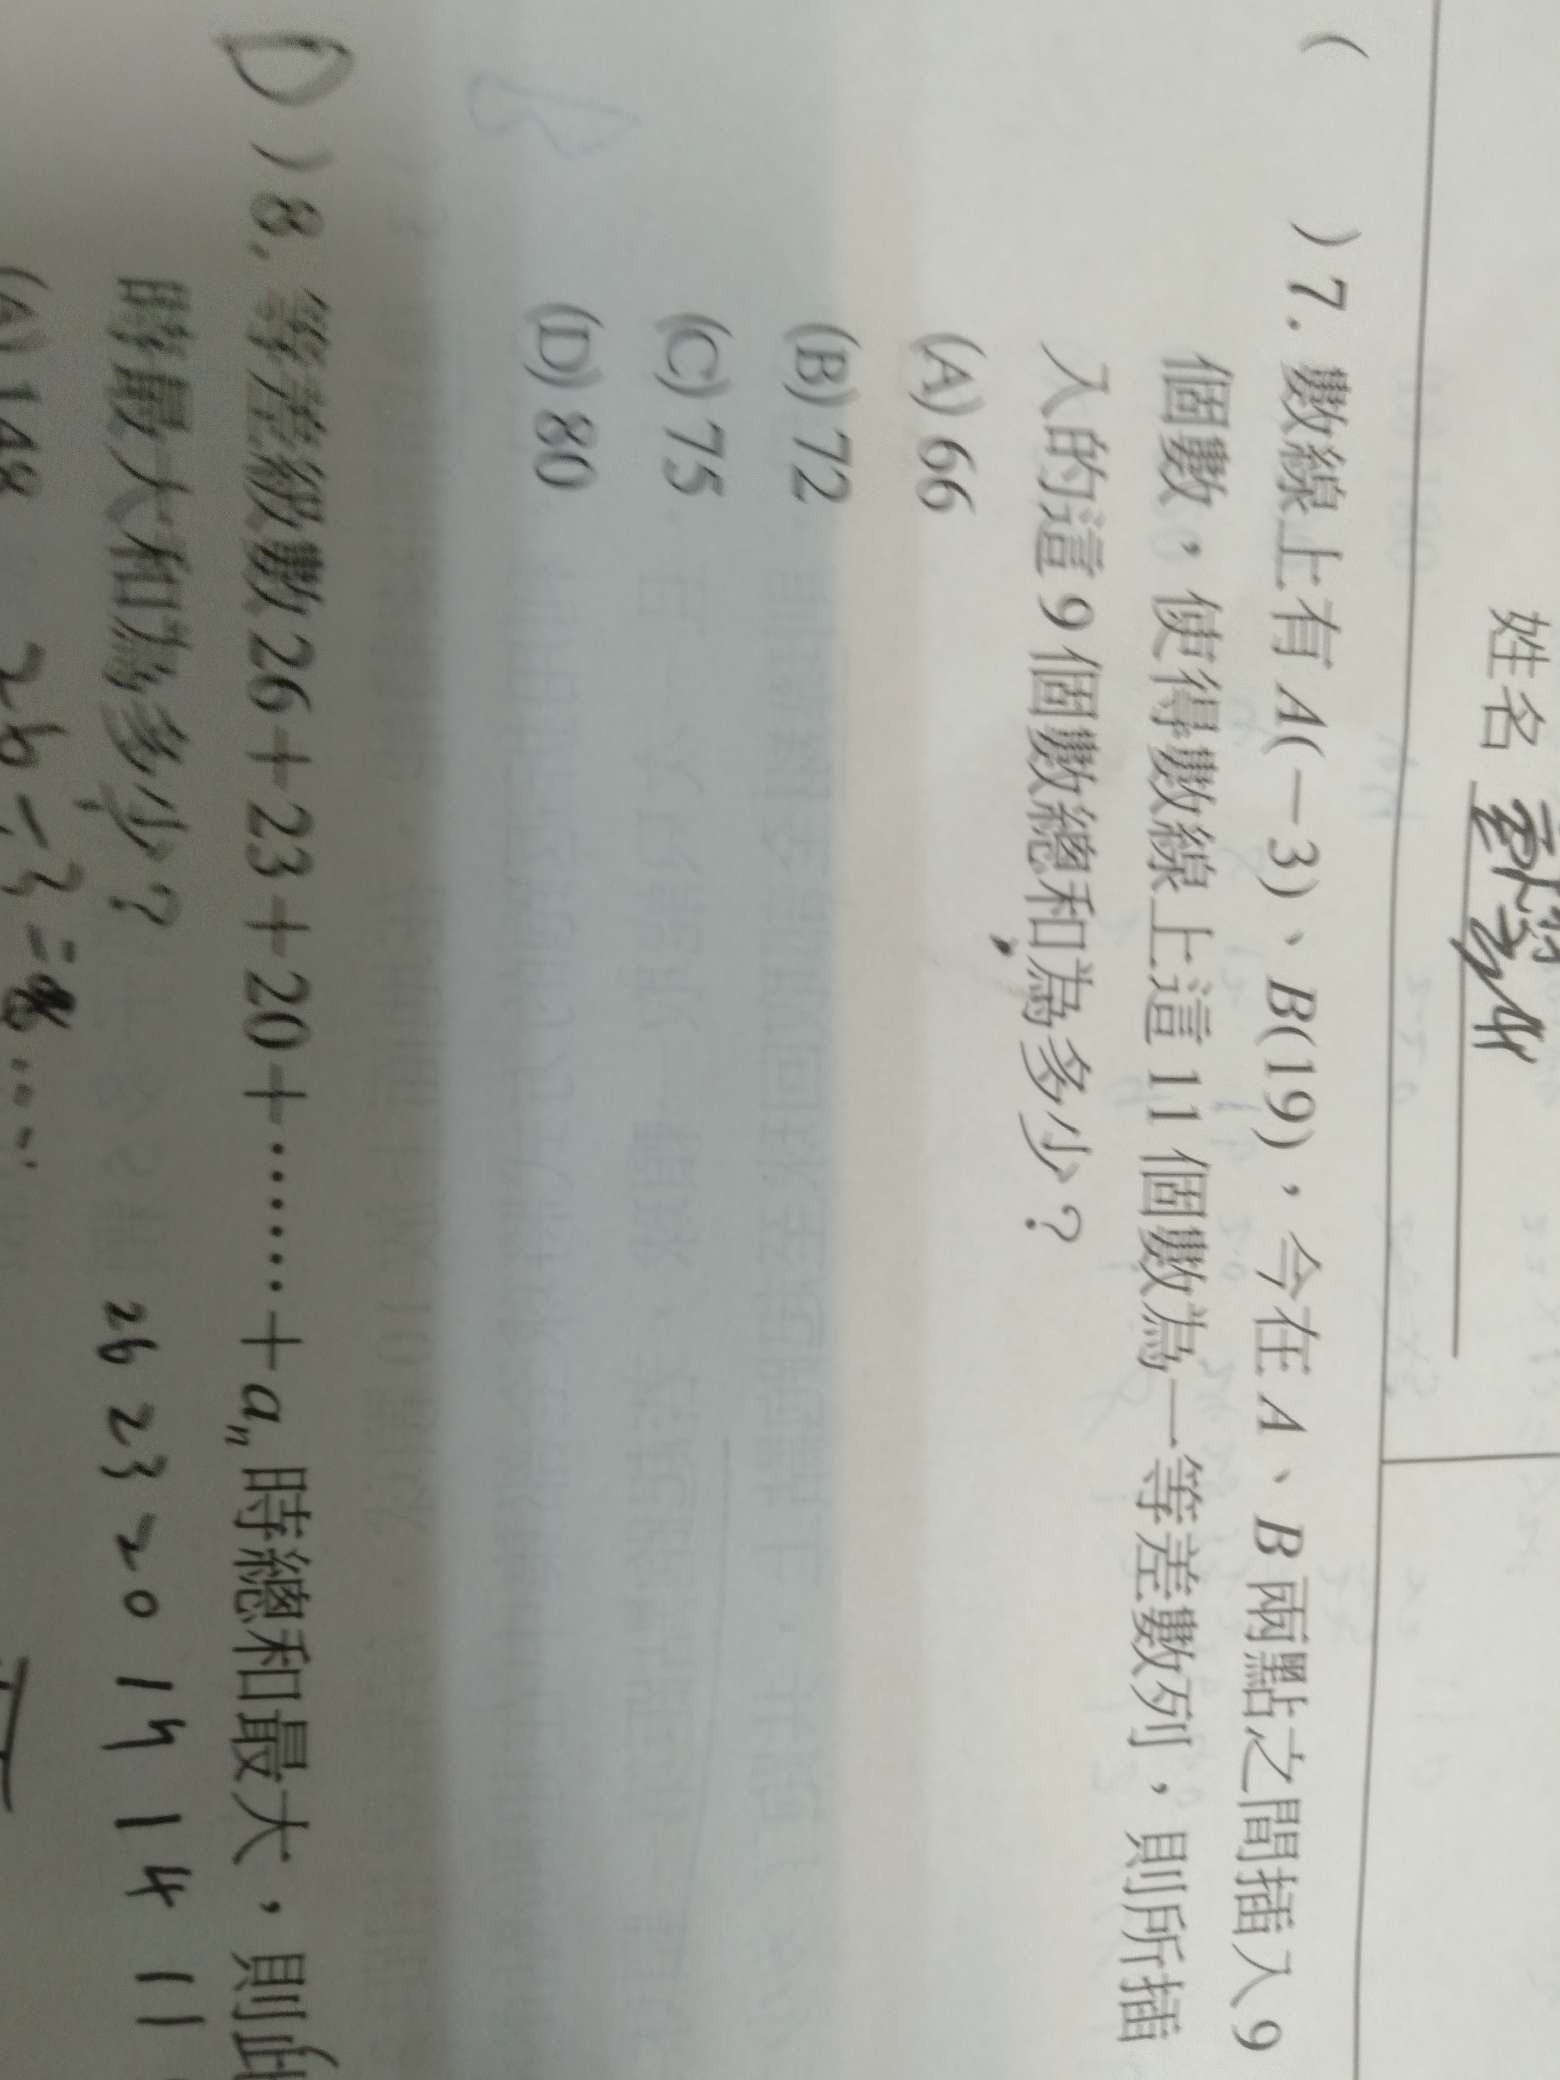 姓名
( )7. 數線上有 A(－3)、B(19)，今在 A、B 兩點之間插入 9
個數，使得數線上這 11 個數為一等差數列，則所插
入的這 9 個數總和為多少？
(A) 66
(B) 72
(C) 75
(D) 80
D )8. 等差級數 26＋23＋20＋……＋aₙ 時總和最大，則此
時最大和為多少？
26 23 20 17 14 11
(A) 148